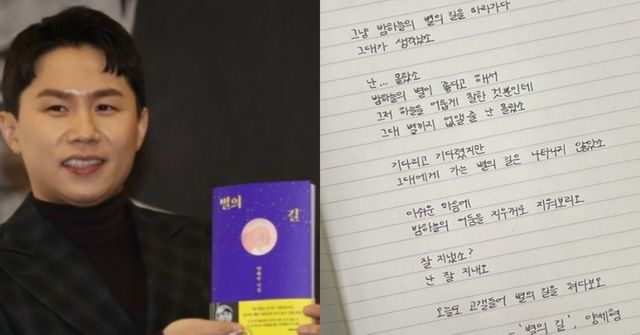 별의
길
양세형 시집
그냥 밤하늘의 별의 길을 따라가다
그대가 생각났소
난... 몰랐소
밤하늘의 별이 좋다고 해서
그저 하늘을 어둡게 칠한 것뿐인데
그대 별까지 없앨 줄 난 몰랐소
기다리고 기다렸지만
그대에게 가는 별의 길은 나타나지 않았소
아쉬운 마음에
밤하늘의 어둠을 지우개로 지워보리오
잘 지냈소?
난 잘 지내오
오늘도 고개들어 별의 길을 쳐다보오
'별의 길', 양세형